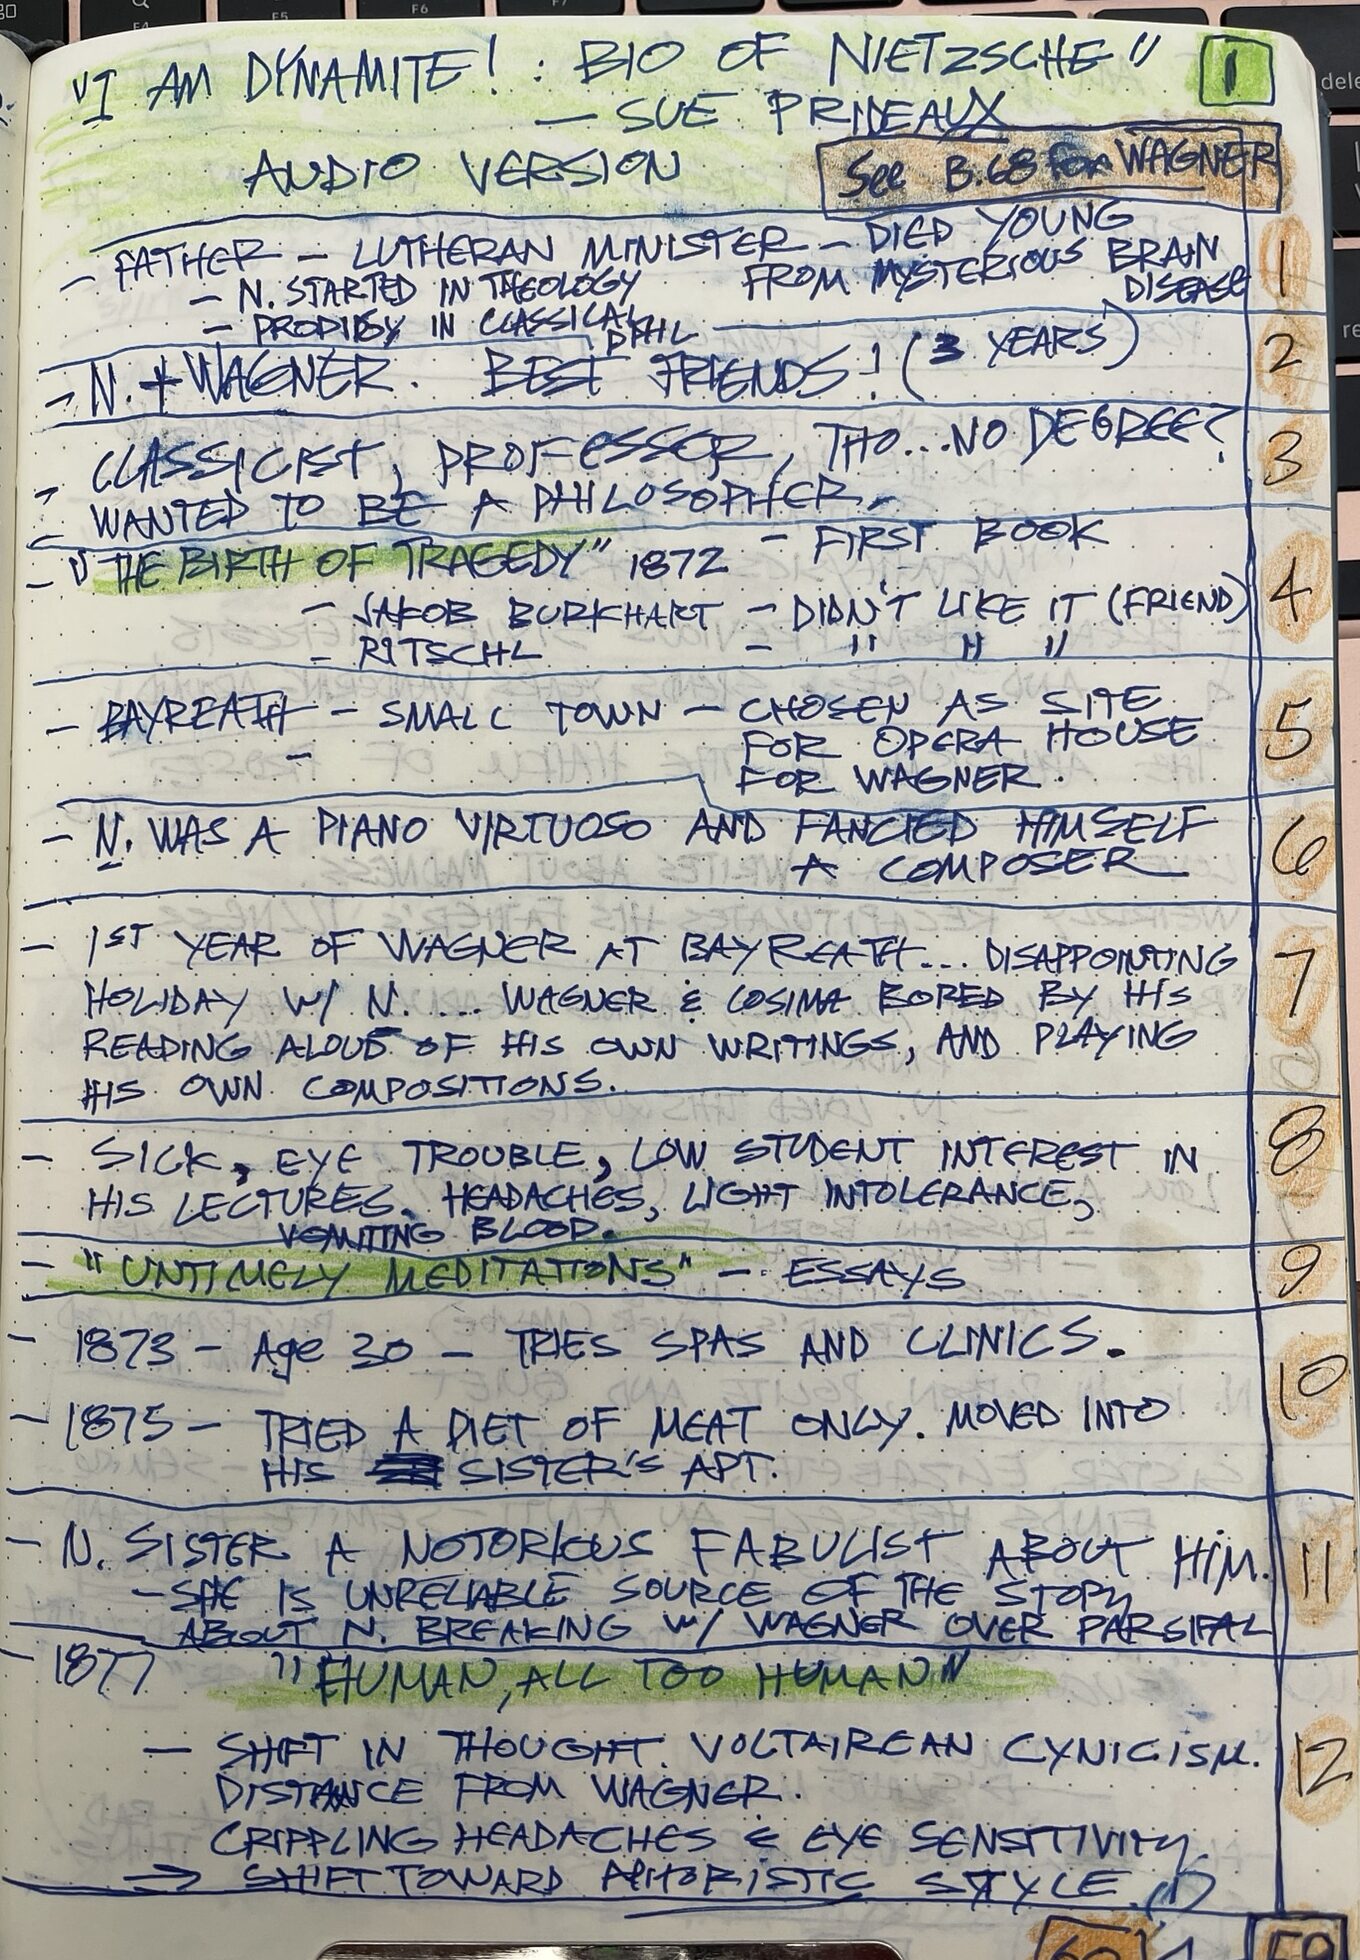 "I AM DYNAMITE! : BIO OF NIETZSCHE" 1
— SUE PRIDEAUX
AUDIO VERSION
See B.68 FOR WAGNER
- FATHER - LUTHERAN MINISTER - DIED YOUNG 1
FROM MYSTERIOUS BRAIN
DISEASE
- N. STARTED IN THEOLOGY
- PRODIGY IN CLASSICAL
PHIL
- N. + WAGNER. BEST FRIENDS! (3 YEARS) 2
- CLASSICIST, PROFESSOR, THO...NO DEGREE? 3
- WANTED TO BE A PHILOSOPHER.
- "THE BIRTH OF TRAGEDY" 1872 - FIRST BOOK 4
- JAKOB BURKHART - DIDN'T LIKE IT (FRIEND)
- RITSCHL - " " "
- BAYREATH - SMALL TOWN - CHOSEN AS SITE 5
FOR OPERA HOUSE
FOR WAGNER.
- N. WAS A PIANO VIRTUOSO AND FANCIED HIMSELF 6
A COMPOSER
- 1ST YEAR OF WAGNER AT BAYREATH... DISAPPOINTING 7
HOLIDAY W/ N. ... WAGNER & COSIMA BORED BY HIS
READING ALOUD OF HIS OWN WRITINGS, AND PLAYING
HIS OWN COMPOSITIONS.
- SICK, EYE TROUBLE, LOW STUDENT INTEREST IN 8
HIS LECTURES. HEADACHES, LIGHT INTOLERANCE,
VOMITING BLOOD.
- "UNTIMELY MEDITATIONS" - ESSAYS 9
- 1873 - Age 30 - TRIES SPAS AND CLINICS. 10
- 1875 - TRIED A DIET OF MEAT ONLY. MOVED INTO
HIS SISTER'S APT.
- N. SISTER A NOTORIOUS FABULIST ABOUT HIM. 11
- SHE IS UNRELIABLE SOURCE OF THE STORY
ABOUT N. BREAKING W/ WAGNER OVER PARSIFAL
- 1877 "HUMAN, ALL TOO HUMAN"
- SHIFT IN THOUGHT. VOLTAIREAN CYNICISM. 12
DISTANCE FROM WAGNER.
CRIPPLING HEADACHES & EYE SENSITIVITY
→ SHIFT TOWARD APHORISTIC STYLE